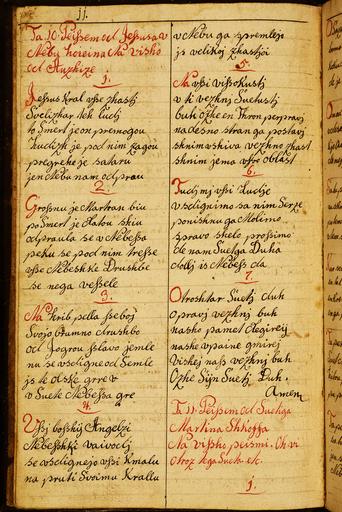 jj.
Ta 10. Peissem od Jesusa v
Nebu hoieina Na visho
od Auzhize
1.
Jessus Kral vsse zhasti
Svelizhar teh Ludj
to Smert je on premogou
hudizh je pod nim Lagou
pregrehe je sataru
jen Nebu nam odprau
2.
Grosnu je Martran biu
po Smert je statou shiu
odpraula se v Nebessa
peku se pod nim tresse
vsse Nebeshke Drushbe
se nega vesele
3.
Na hrib pella sseboj
Svojo Osumno drushbo
od Jogrou sslavo jemle
nu se vsdigne od Semle
js te otske grre v
v Suete Nebessa gre
4.
Vssi bosshij Angelzi
Nebesshki vaivodzi
se vsdignejo vssi kmalu
na pruti Svoimu Krallu
v Nebu ga spremlejo
js velikoj zhastjoi
5.
Na vssi vissokusti
v ti vezhnj Suetusti
buth Ozhe en Thron perpravj
na desno stran ga postavj
shnim shiva vezhno zhast
shnim jema vsso oblast
6.
Tudj mj vssi Ludje
vsdignimo sa nim Serze
ponishnu ga Molimo
spravo shelo prossimo
de nam Suetga Duha
dollj is Nebess da
7.
O troshtar Suetj duh
opravj vezhnj buh
nasho pamet Regireij
nashe vpaine gmirej
Vishej nass vezhnj buh
Ozhe Sijn Suetj Duh.
Amen
Ta 11. Peissem od Suetiga
Martina Shkoffa
Na visho peismi. Oh vi
otroz tega Sueta etc.
1.